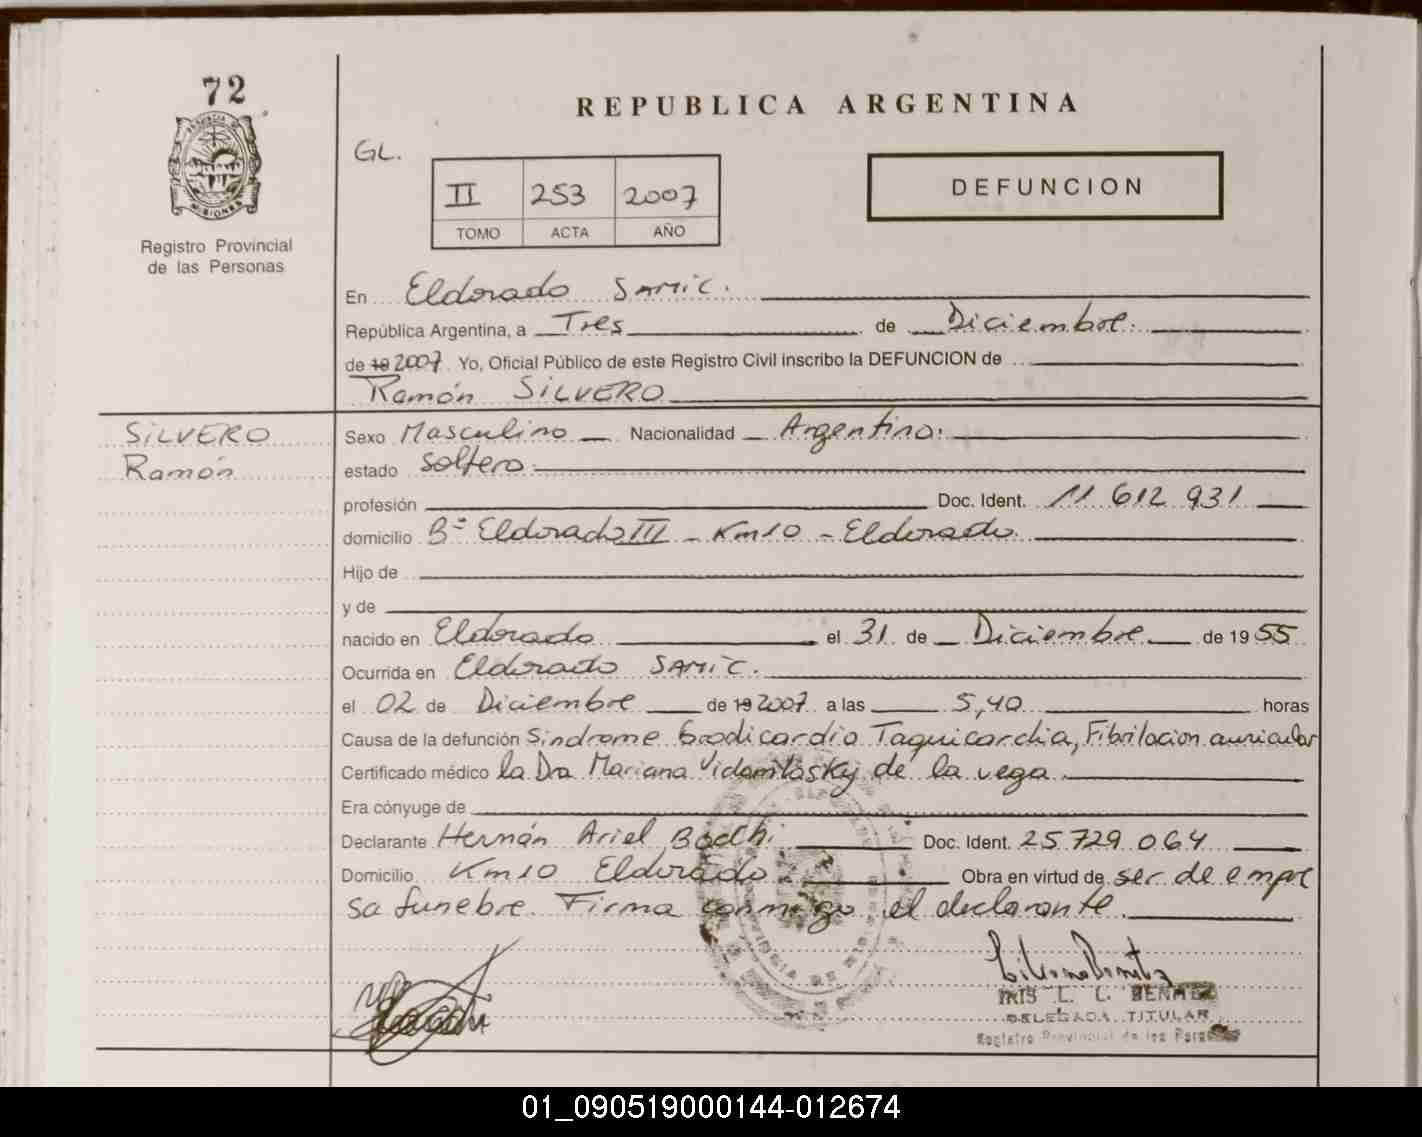 72
REPUBLICA ARGENTINA
GL.
II 253 2007
TOMO ACTA AÑO
DEFUNCION
MISIONES
Registro Provincial
de las Personas
En Eldorado SAMIC.
República Argentina, a Tres de Diciembre.
de 19 2007 Yo, Oficial Público de este Registro Civil inscribo la DEFUNCION de
Ramón SILVERO
SILVERO
Ramón
Sexo Masculino Nacionalidad Argentina.
estado soltero
profesión Doc. Ident. 11 612 931
domicilio Bº Eldorado III - Km10 - Eldorado.
Hijo de
y de
nacido en Eldorado el 31 de Diciembre de 19 55
Ocurrida en Eldorado SAMIC.
el 02 de Diciembre de 19 2007 a las 5,40 horas
Causa de la defunción Sindrome Bradicardia Taquicardia, Fibrilacion auricular
Certificado médico la Dra Mariana de la vega
Era cónyuge de
Declarante Hernán Ariel Doc. Ident. 25.729.064
Domicilio Km10 Eldorado Obra en virtud de ser de empre
sa funebre. Firma conmigo el declarante.
IRIS L. L. BENITEZ
DELEGADA TITULAR
Registro Provincial de las Personas
01_090519000144-012674